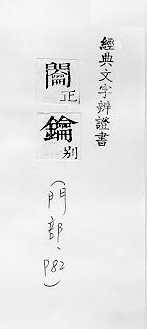 經典文字辨證書
闔正
鑰別
(門部、P82)